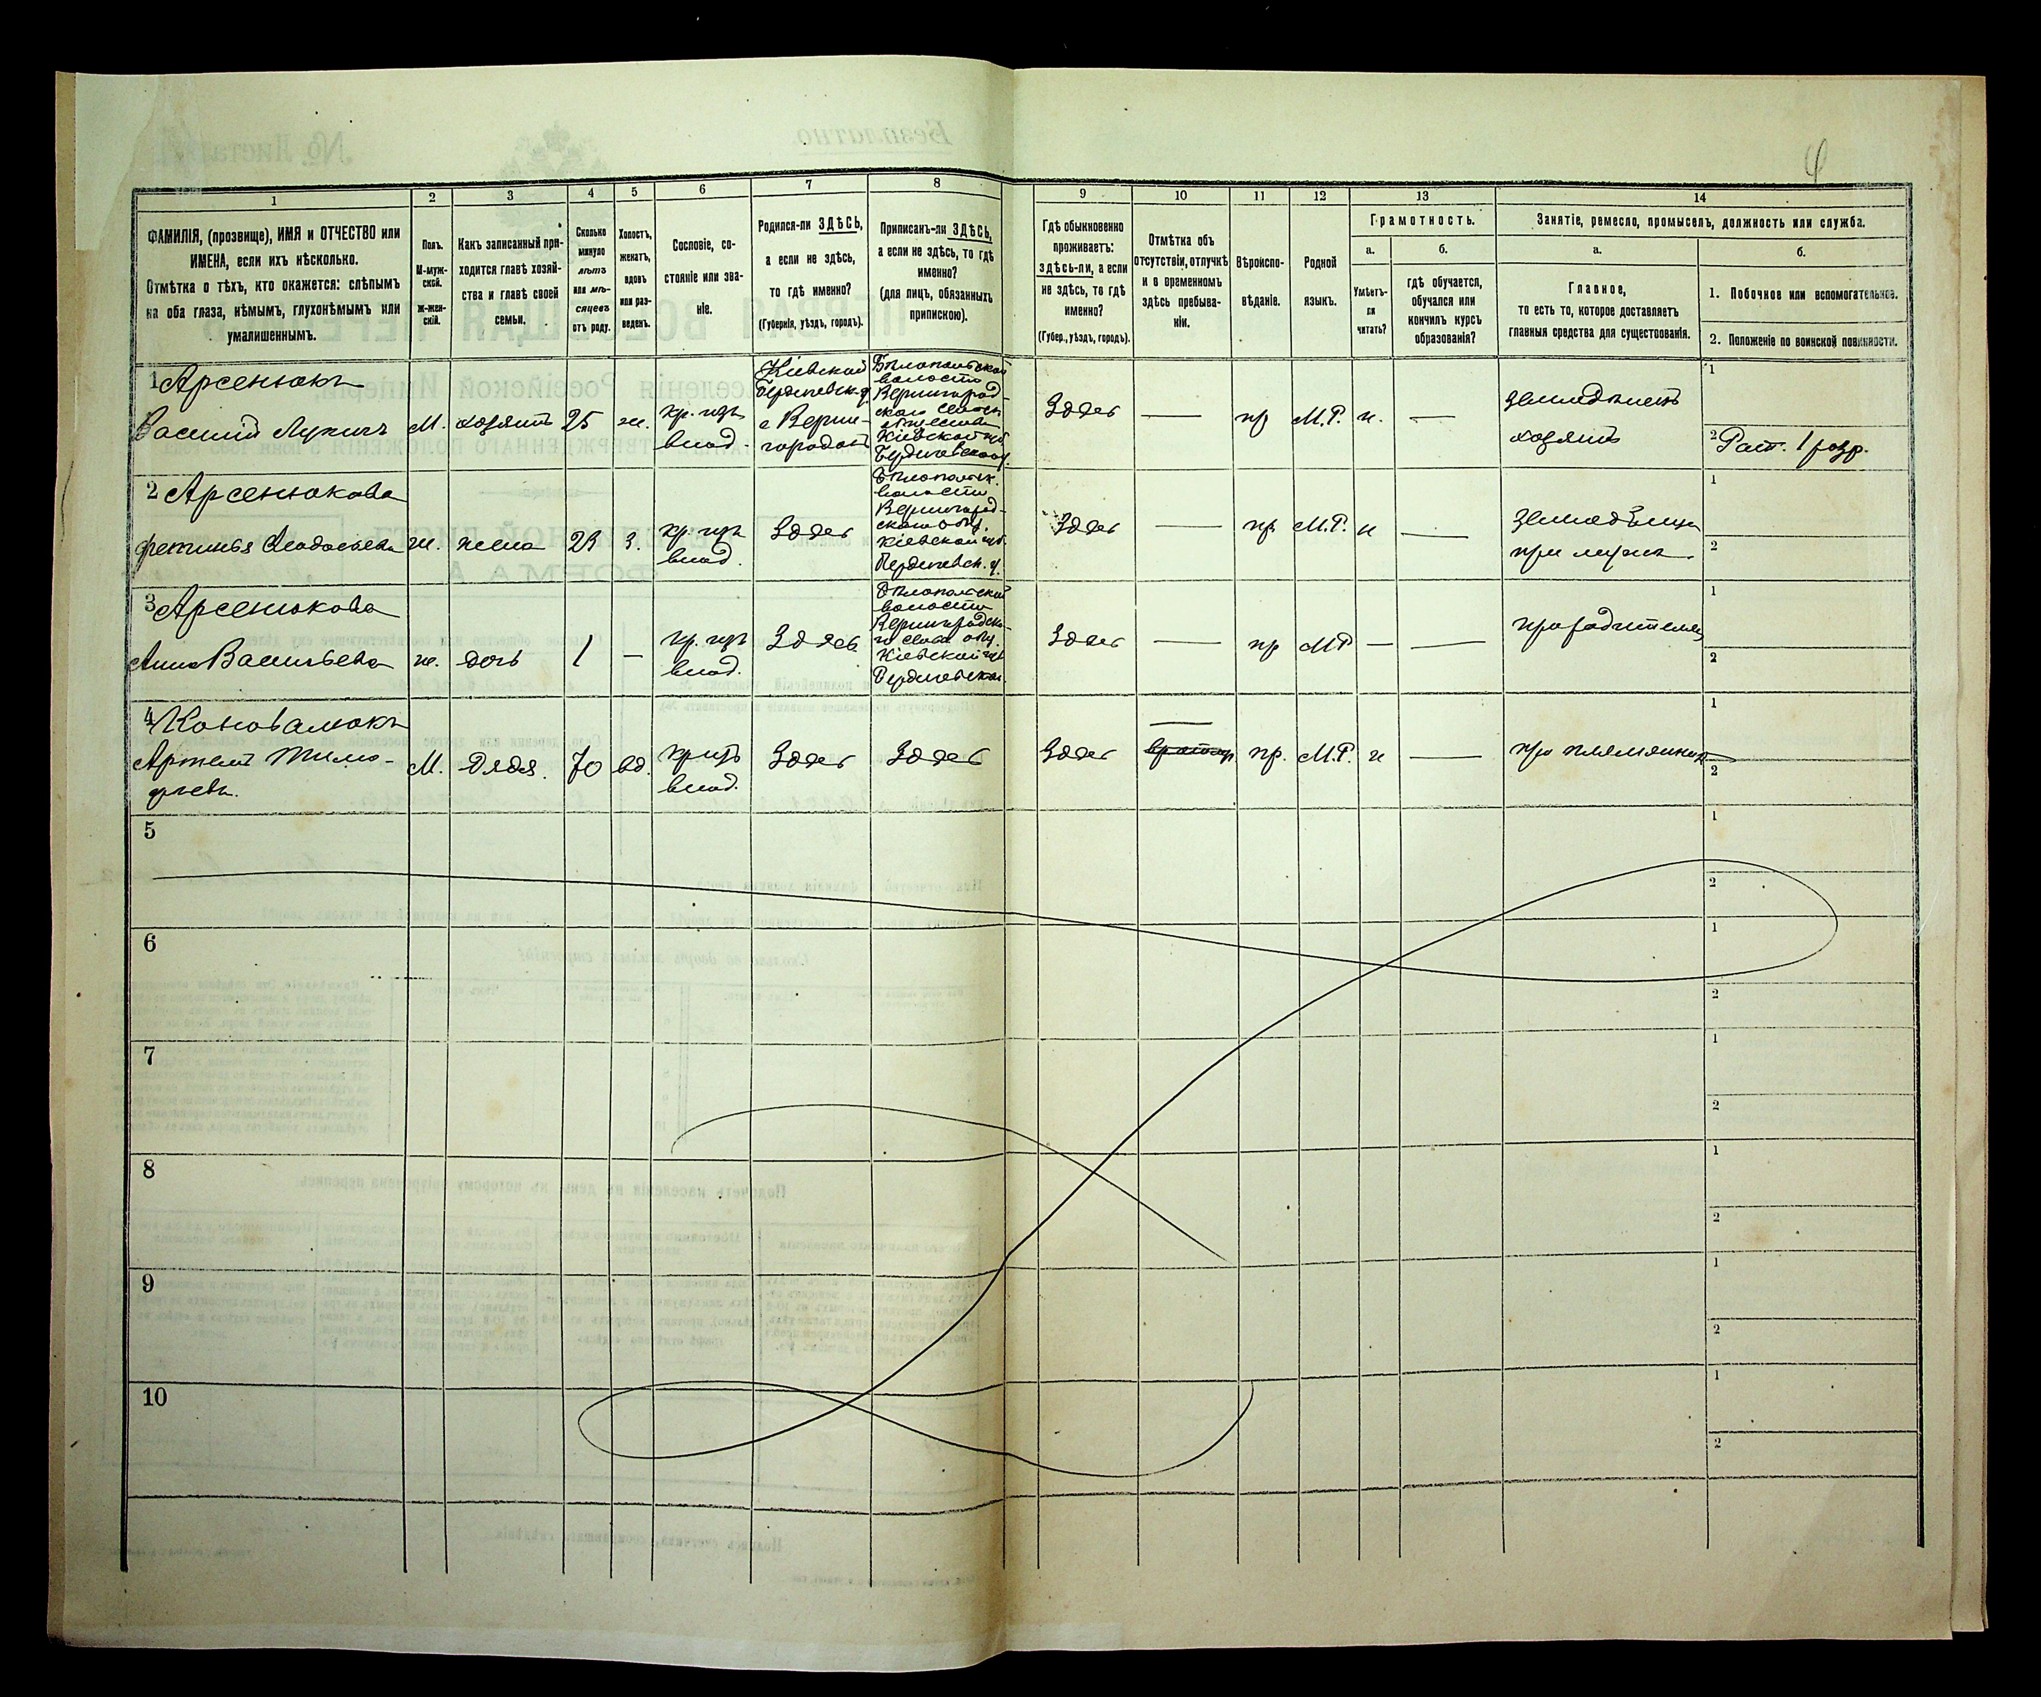 4
1
2
3
4
5
6
7
8
9
10
11
12
13
14
ФАМИЛІЯ, (прозвище), ИМЯ и ОТЧЕСТВО или
ИМЕНА, если ихъ нѣсколько.
Отмѣтка о тѣхъ, кто окажется: слѣпымъ
на оба глаза, нѣмымъ, глухонѣмымъ или
умалишеннымъ.
Полъ.
М-муж-
ской.
Ж-жен-
скій.
Какъ записанный при-
ходится главѣ хозяй-
ства и главѣ своей
семьи.
Сколько
минуло
лѣтъ
или мѣ-
сяцевъ
отъ роду.
Холостъ,
женатъ,
вдовъ
или раз-
веденъ.
Сословіе, со-
стояніе или зва-
ніе.
Родился-ли ЗДѢСЬ,
а если не здѣсь,
то гдѣ именно?
(Губернія, уѣздъ, городъ).
Приписанъ-ли ЗДѢСЬ,
а если не здѣсь, то гдѣ
именно?
(для лицъ, обязанныхъ
припискою).
Гдѣ обыкновенно
проживаетъ:
здѣсь-ли, а если
не здѣсь, то гдѣ
именно?
(Губер., уѣздъ, городъ).
Отмѣтка объ
отсутствіи, отлучкѣ
и о временномъ
здѣсь пребыва-
ніи.
Вѣроиспо-
вѣданіе.
Родной
языкъ.
Грамотность.
а.
Умѣетъ-
ли
читать?
б.
гдѣ обучается,
обучался или
кончилъ курсъ
образованія?
Занятіе, ремесло, промыселъ, должность или служба.
а.
Главное,
то есть то, которое доставляетъ
главныя средства для существованія.
б.
1. Побочное или вспомогательное.
2. Положеніе по воинской повинности.
1 Арсенюкъ
Василій Лукичъ
М.
хозяинъ
25
ж.
кр. изъ
влад.
Кіевской
Бердичевск. у.
с Верни-
городокъ
Бѣлопольской
волости
Вернигород-
скаго сельск.
общества
Кіевской губ.
Бердичевскаго у.
Здѣсь
—
пр
М.Р.
н.
—
земледѣлецъ
хозяинъ
1
2 Рат. 1 розр.
2 Арсенюкова
Фетинья
ж.
жена
23
з.
кр. изъ
влад.
Здѣсь
Бѣлопольск.
волости
Вернигород-
скаго общ.
Кіевской губ.
Бердичевск. у.
Здѣсь
—
пр.
М.Р.
н
—
при мужѣ.
1
2
3 Арсенюкова
Анна Васильева
ж.
дочь
1
—
кр. изъ
влад.
Здѣсь
Бѣлопольской
волости
Вернигородска-
го сельск. общ.
Кіевской губ.
Бердичевскаго
Здѣсь
—
пр
М.Р.
—
—
при родителяхъ
1
2
4 Коновалюкъ
Артемъ Тимо-
фѣевъ.
М.
дядя.
70
вд.
кр. изъ
влад.
Здѣсь
Здѣсь
Здѣсь
—
пр.
М.Р.
н
—
при племянникѣ
1
2
5
1
2
6
1
2
7
1
2
8
1
2
9
1
2
10
1
2